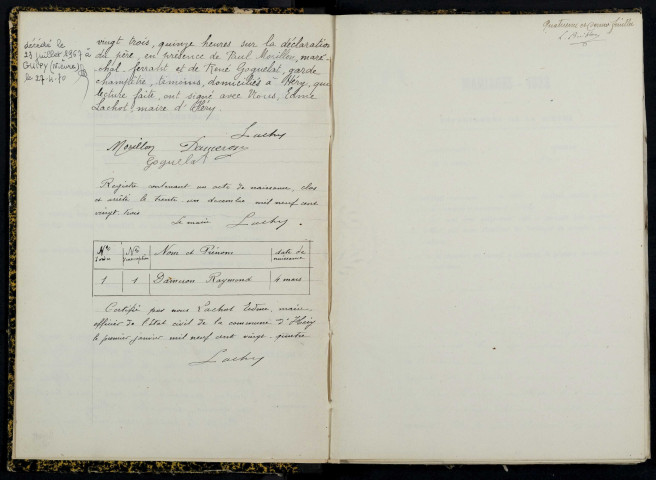 décédé le
23 juillet 1967 à
(Nièvre)
le 27-4-70
vingt trois, quinze heures sur la déclaration
du père, en présence de Paul Morillon, maré-
chal-ferrant et de René Goguelat, garde
champêtre, témoins, domiciliés à Héry, qui,
lecture faite, ont signé avec Nous, Edme
Lachot, maire d'Héry.
Morillon Dameron
Goguelat
Registre contenant un acte de naissance, clos
et arrêté le trente un décembre mil neuf cent
vingt trois
Le maire
Nos d'ordre Nos d'inscription Nom et Prénoms date de naissance
1 1 Dameron Raymond 4 mars
Certifié par nous Lachot Edme, maire
officier de l'Etat civil de la commune d'Héry
le premier janvier mil neuf cent vingt-quatre
Quatrième et dernier feuillet